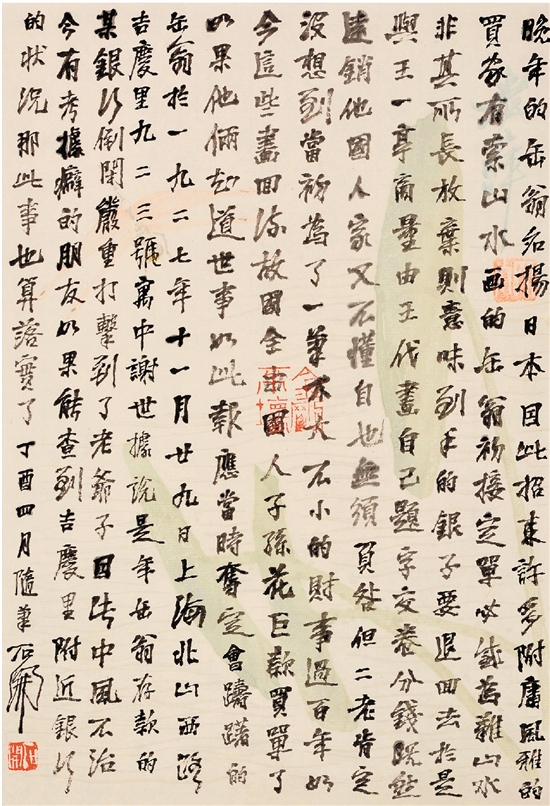 晚年的缶翁名揚日本因此招來許多附庸風雅的
買家有索山水画的缶翁初接定單必感為難山水
非其所長放棄則意味到手的銀子要退回去於是
與王一亭商量由王代畫自己題字交卷分錢既然
遠銷他国人家又不懂自也無須負咎但二老肯定
沒想到當初為了一筆不大不小的財事過百年如
今這些畫回流故國全由國人子孫花巨款買單了
如果他倆知道世事如此報應當時奮定會躊躇的
缶翁於一九二七年十一月廿九日上海北山西路
吉慶里九二三號寓中謝世據說是年缶翁存款的
某銀行倒閉嚴重打擊到了老爺子因此中風不治
今有考據癖的朋友如果能查到吉慶里附近銀行
的状况那此事也算落實了丁酉四月隨筆石開